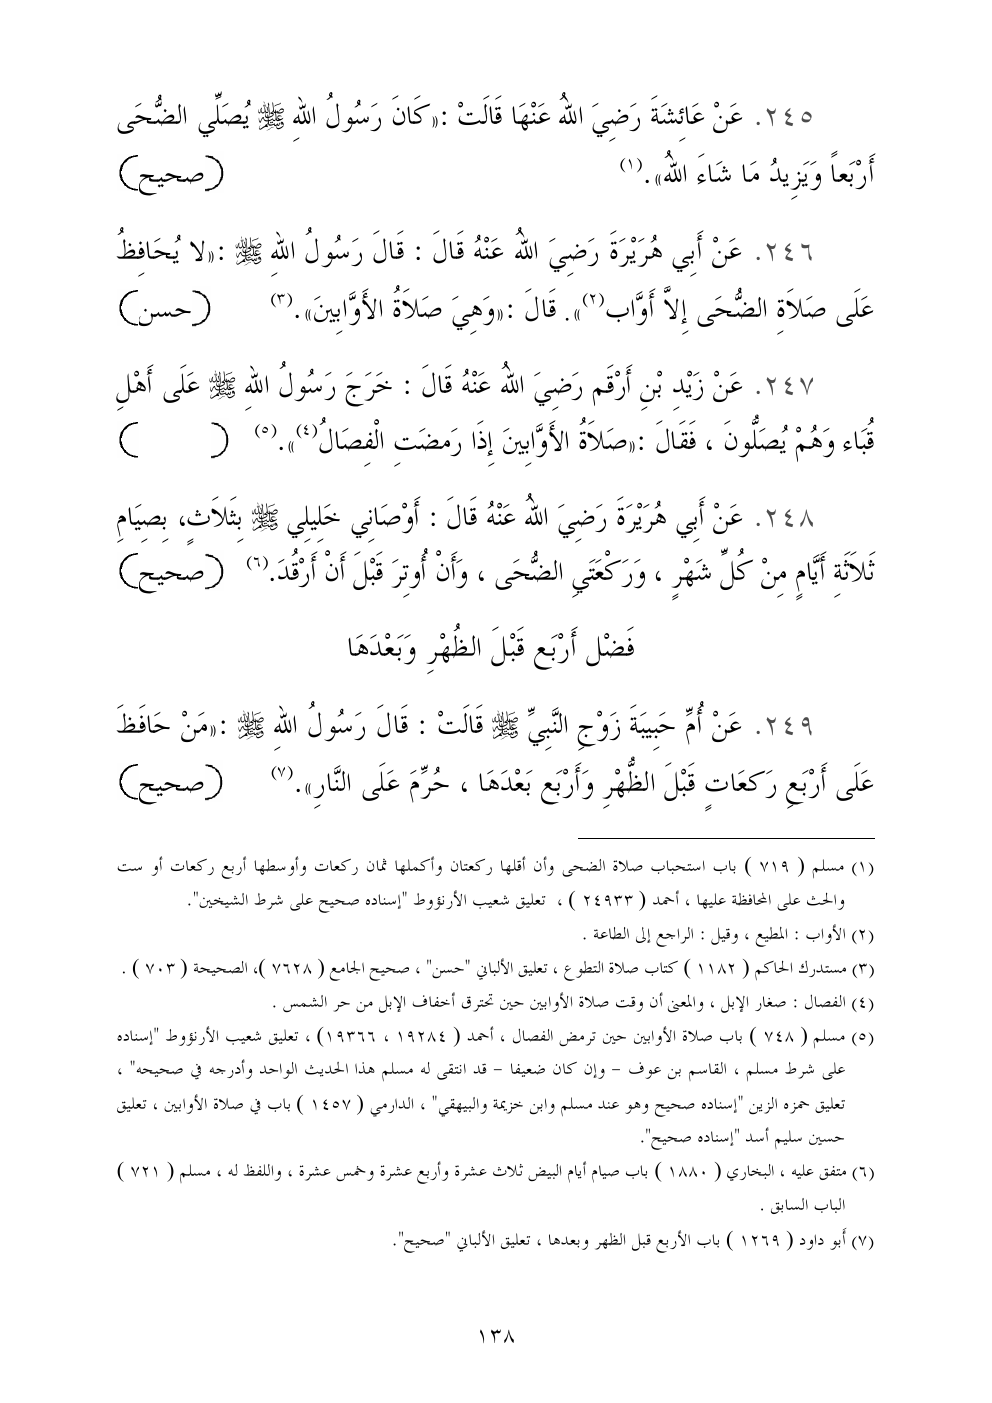 ٢٤٥. عَنْ عَائِشَةَ رَضِيَ اللهُ عَنْهَا قَالَتْ :«كَانَ رَسُولُ اللهِ ﷺ يُصَلِّي الضُّحَى
أَرْبَعاً وَيَزِيدُ مَا شَاءَ اللهُ».(١) (صحيح)
٢٤٦. عَنْ أَبِي هُرَيْرَةَ رَضِيَ اللهُ عَنْهُ قَالَ : قَالَ رَسُولُ اللهِ ﷺ :«لا يُحَافِظُ
عَلَى صَلاَةِ الضُّحَى إِلاَّ أَوَّاب(٢)». قَالَ :«وَهِيَ صَلاَةُ الأَوَّابِينَ».(٣) (حسن)
٢٤٧. عَنْ زَيْدِ بْنِ أَرْقَم رَضِيَ اللهُ عَنْهُ قَالَ : خَرَجَ رَسُولُ اللهِ ﷺ عَلَى أَهْلِ
قُبَاء وَهُمْ يُصَلُّونَ ، فَقَالَ :«صَلاَةُ الأَوَّابِينَ إِذَا رَمضَتِ الْفِصَالُ(٤)».(٥) ( )
٢٤٨. عَنْ أَبِي هُرَيْرَةَ رَضِيَ اللهُ عَنْهُ قَالَ : أَوْصَانِي خَلِيلِي ﷺ بِثَلاَثٍ، بِصِيَامِ
ثَلاَثَةِ أَيَّامٍ مِنْ كُلِّ شَهْرٍ ، وَرَكْعَتَيِ الضُّحَى ، وَأَنْ أُوتِرَ قَبْلَ أَنْ أَرْقُدَ.(٦) (صحيح)
فَضْل أَرْبَع قَبْلَ الظُهْرِ وَبَعْدَهَا
٢٤٩. عَنْ أُمِّ حَبِيبَةَ زَوْجِ النَّبِيِّ ﷺ قَالَتْ : قَالَ رَسُولُ اللهِ ﷺ :«مَنْ حَافَظَ
عَلَى أَرْبَعِ رَكعَاتٍ قَبْلَ الظُّهْرِ وَأَرْبَع بَعْدَهَا ، حُرِّمَ عَلَى النَّارِ».(٧) (صحيح)
(١) مسلم ( ٧١٩ ) باب استحباب صلاة الضحى وأن أقلها ركعتان وأكملها ثمان ركعات وأوسطها أربع ركعات أو ست
والحث على المحافظة عليها ، أحمد ( ٢٤٩٣٣ ) ، تعليق شعيب الأرنؤوط "إسناده صحيح على شرط الشيخين".
(٢) الأواب : المطيع ، وقيل : الراجع إلى الطاعة .
(٣) مستدرك الحاكم ( ١١٨٢ ) كتاب صلاة التطوع ، تعليق الألباني "حسن" ، صحيح الجامع ( ٧٦٢٨ )، الصحيحة ( ٧٠٣ ) .
(٤) الفصال : صغار الإبل ، والمعنى أن وقت صلاة الأوابين حين تحترق أخفاف الإبل من حر الشمس .
(٥) مسلم ( ٧٤٨ ) باب صلاة الأوابين حين ترمض الفصال ، أحمد ( ١٩٢٨٤ ، ١٩٣٦٦) ، تعليق شعيب الأرنؤوط "إسناده
على شرط مسلم ، القاسم بن عوف – وإن كان ضعيفا – قد انتقى له مسلم هذا الحديث الواحد وأدرجه في صحيحه" ،
تعليق حمزه الزين "إسناده صحيح وهو عند مسلم وابن خزيمة والبيهقي" ، الدارمي ( ١٤٥٧ ) باب في صلاة الأوابين ، تعليق
حسين سليم أسد "إسناده صحيح".
(٦) متفق عليه ، البخاري ( ١٨٨٠ ) باب صيام أيام البيض ثلاث عشرة وأربع عشرة وخمس عشرة ، واللفظ له ، مسلم ( ٧٢١ )
الباب السابق .
(٧) أبو داود ( ١٢٦٩ ) باب الأربع قبل الظهر وبعدها ، تعليق الألباني "صحيح".
١٣٨